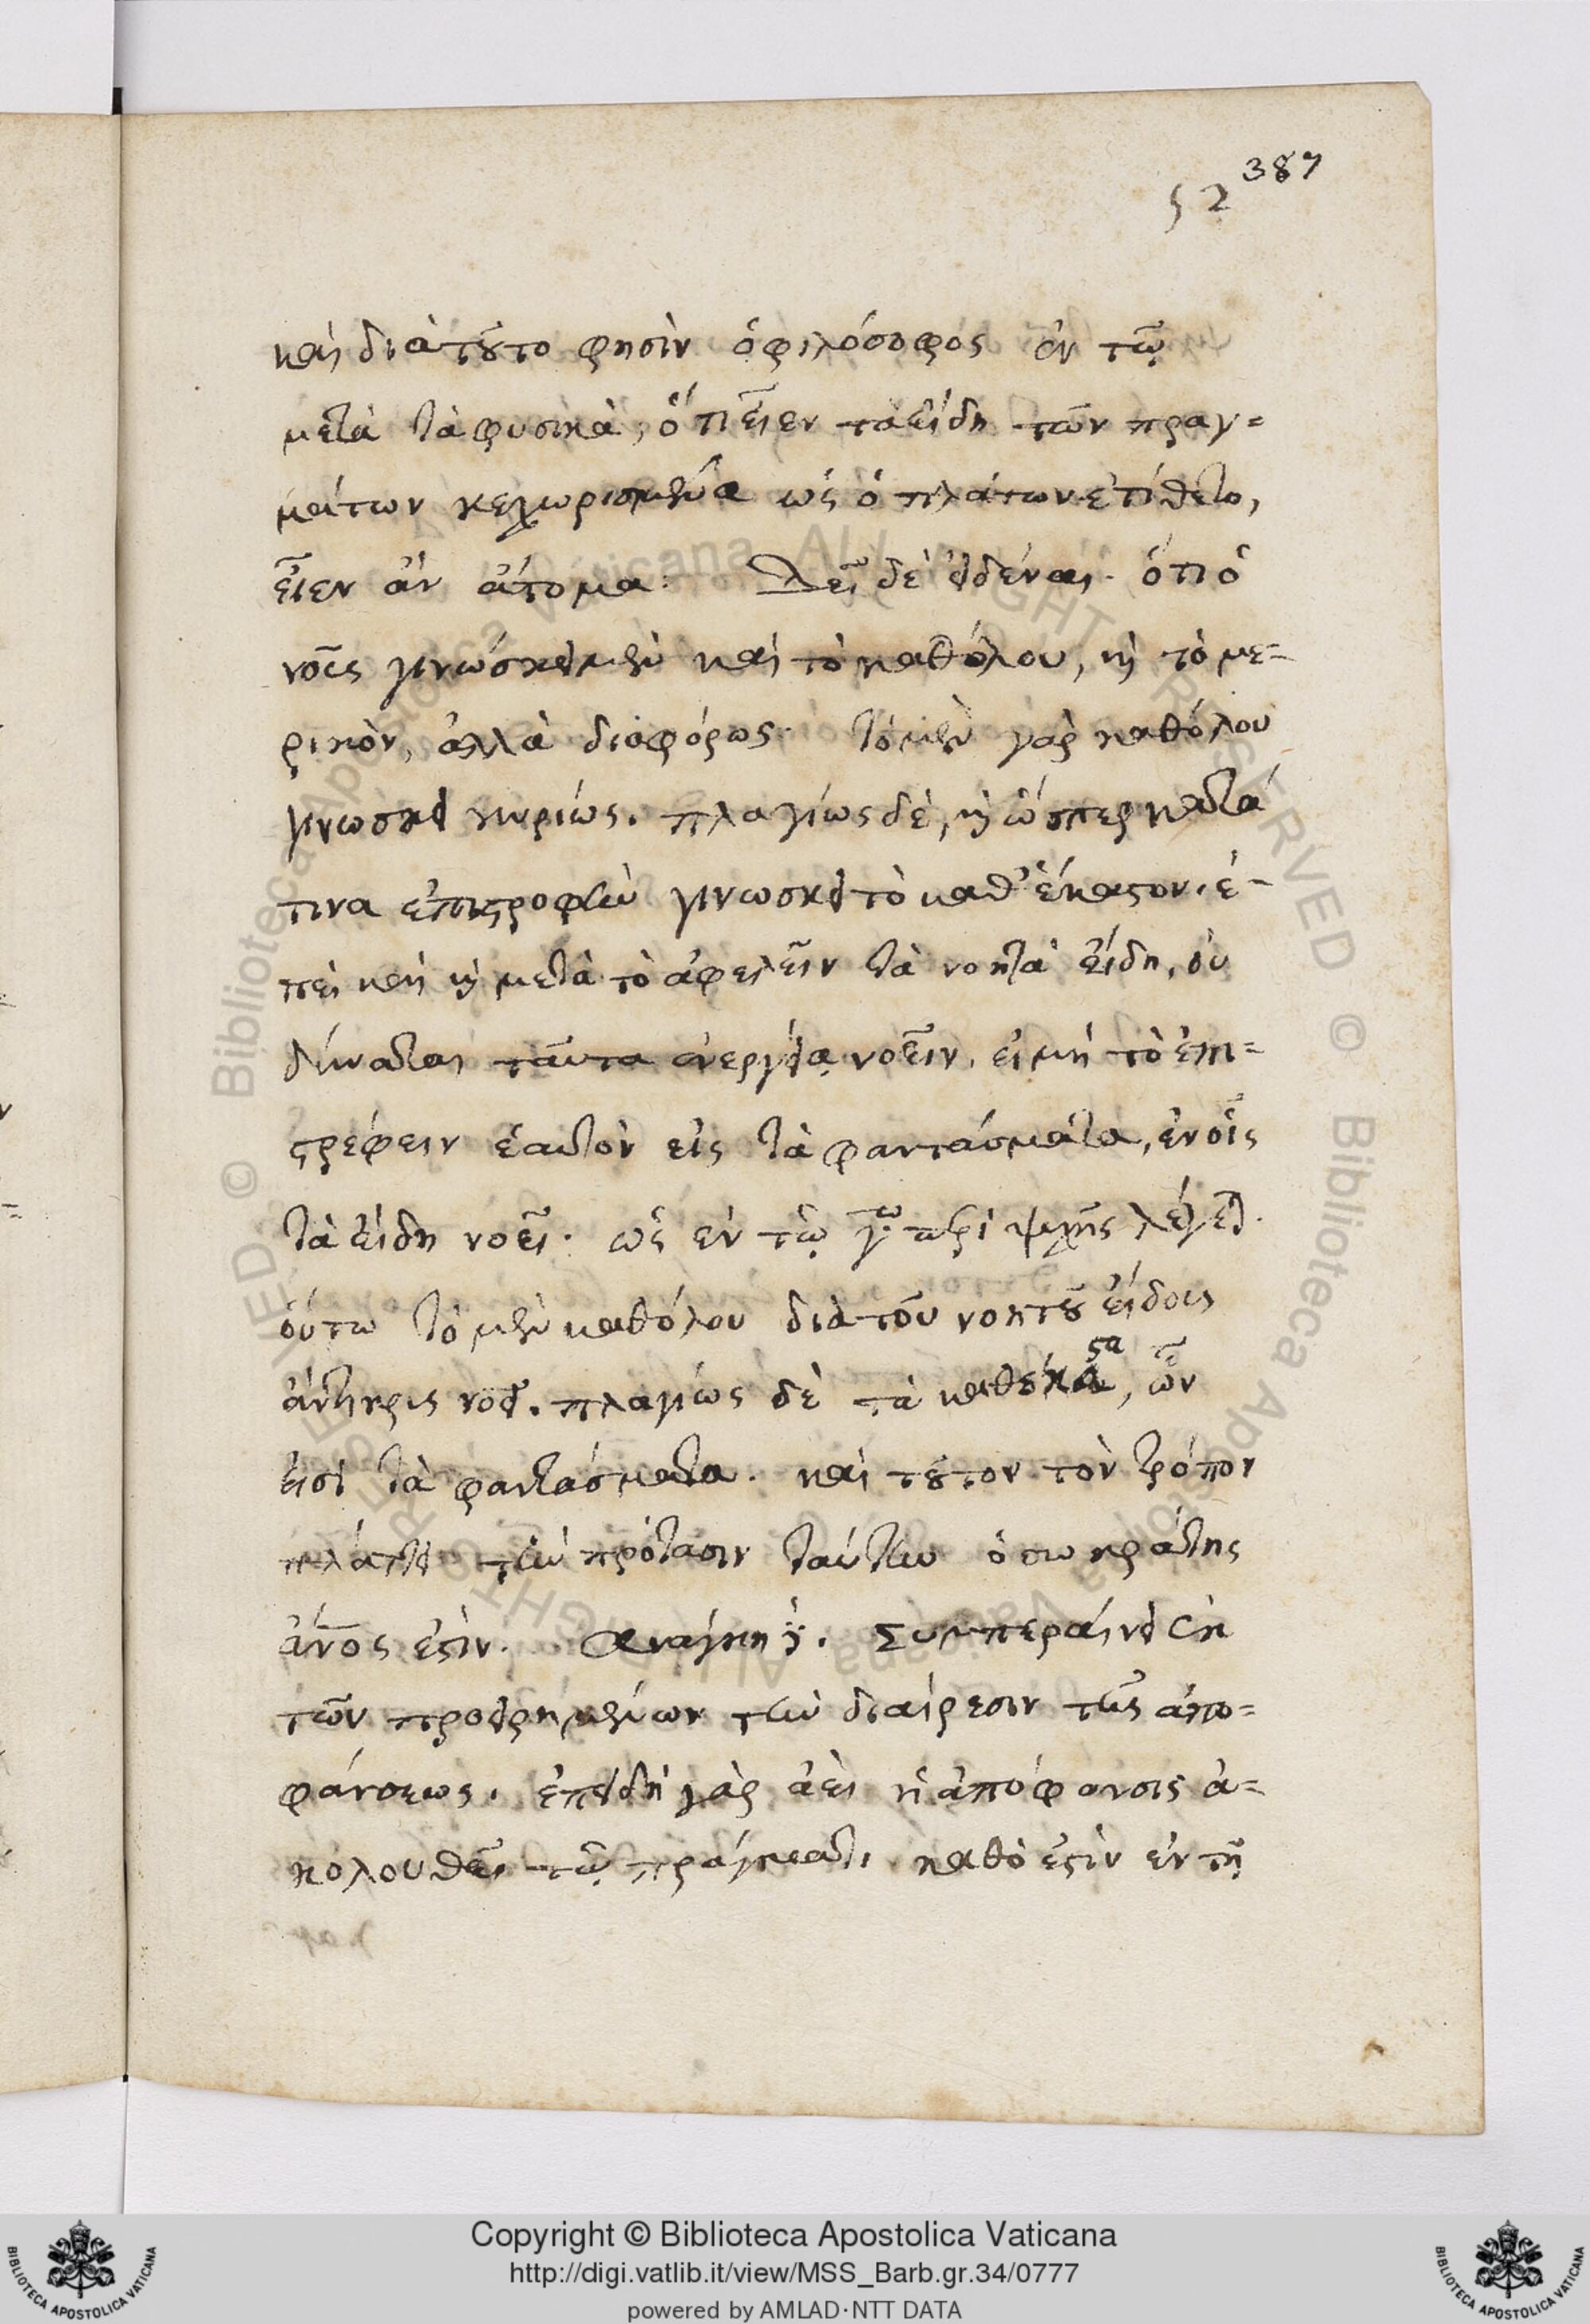 387
52
καὶ διὰ τοῦτο φησὶν ὁ φιλόσοφος ἐν τῷ
μετὰ τὰ φυσικὰ, ὅτι εἶεν τὰ εἴδη τῶν πραγ=
μάτων κεχωρισμένα ὡς ὁ πλάτων ἐτίθετο,
εἶεν ἂν ἄτομα: Δεῖ δὲ εἰδέναι ὅτι ὁ
νοῦς γινώσκει μὲν καὶ τὸ καθόλου, καὶ τὸ με=
ρικὸν, ἀλλὰ διαφόρως. τὸ μὲν γὰρ καθόλου
γινωσκει κυρίως. πλαγίως δὲ, καὶ ὥσπερ κατά
τινα ἐπιστροφὴν γινωσκει τὸ καθ' ἕκαστον. ἐ=
πεὶ καὶ μετὰ τὸ ἀφελεῖν τὰ νοητὰ εἴδη, οὐ
δύναται ταῦτα ἐνεργείᾳ νοεῖν. εἰ μὴ τὸ ἐπι=
στρέφειν ἑαυτὸν εἰς τὰ φαντάσματα, ἐν οἷς
τὰ εἴδη νοεῖ. ὡς ἐν τῷ γ.ω περὶ ψυχῆς λέγεται.
οὕτω τὸ μὲν καθόλου διὰ τοῦ νοητοῦ εἴδους
ἄντικρις νοεῖ. πλαγίως δὲ τὰ καθέκαστα, ὧν
εἰσὶ τὰ φαντάσματα. καὶ τοῦτον τὸν τρόπον
πλάττει τὴν πρότασιν ταύτην ὁ σωκράτης
ἄνος ἐστίν. Αναγκη γ.. Συμπεραίνει ἐκ
τῶν προειρημένων τὴν διαίρεσιν τῆς ἀπο=
φάνσεως. ἐπειδὴ γὰρ ἀεὶ ἡ ἀπόφανσις ἀ=
κολουθεῖ τῷ πράγματι καθὸ ἐστὶν ἐν τῇ
Copyright © Biblioteca Apostolica Vaticana
http://digi.vatlib.it/view/MSS_Barb.gr.34/0777
powered by AMLAD·NTT DATA